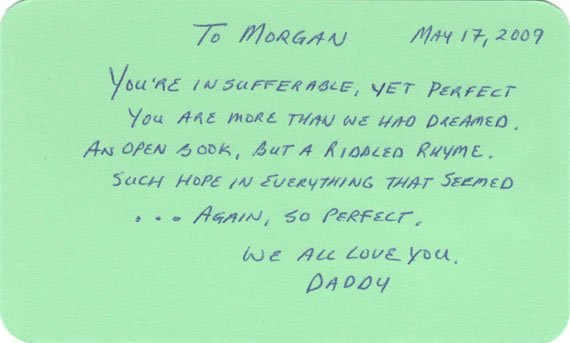 To Morgan May 17, 2009
You're insufferable, yet perfect
You are more than we had dreamed.
An open book, but a riddled rhyme.
Such hope in everything that seemed
... Again, so perfect.
We all love you.
Daddy